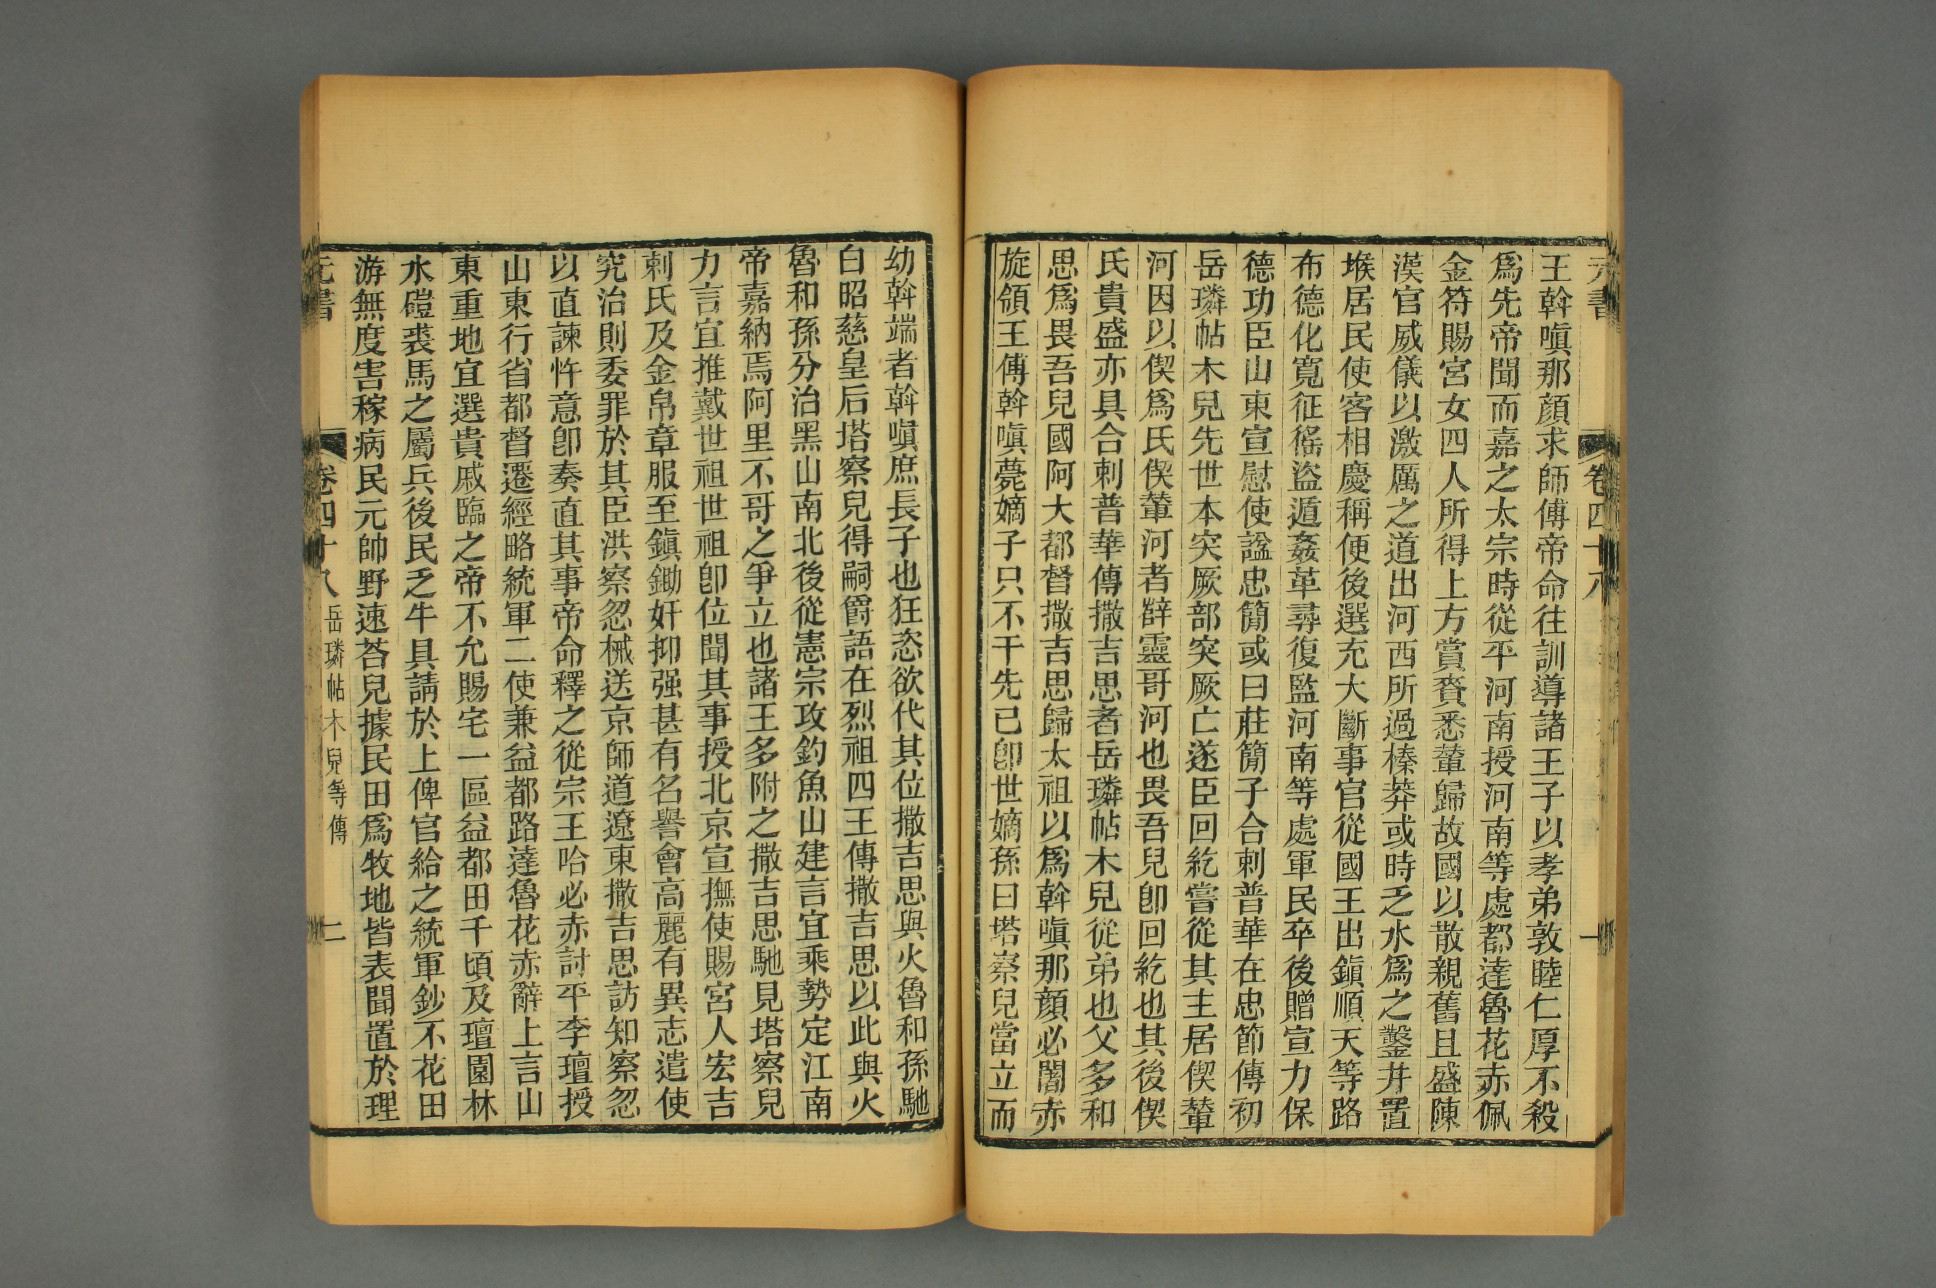 元書
卷四十八
一
王斡嗔那顔求師傅帝命往訓導諸王子以孝弟敦睦仁厚不殺
爲先帝聞而嘉之太宗時從平河南授河南等處都達魯花赤佩
金符賜宮女四人所得上方賞賚悉輦歸故國以散親舊且盛陳
漢官威儀以激厲之道出河西所過榛莽或時乏水爲之鑿井置
堠居民使客相慶稱便後選充大斷事官從國王出鎮順天等路
布德化寬征徭盜遁姦革尋復監河南等處軍民卒後贈宣力保
德功臣山東宣慰使諡忠簡或曰莊簡子合剌普華在忠節傳初
岳璘帖木兒先世本突厥部突厥亡遂臣回紇嘗從其主居偰輦
河因以偰爲氏偰輦河者辥靈哥河也畏吾兒卽回紇也其後偰
氏貴盛亦具合剌普華傳撒吉思者岳璘帖木兒從弟也父多和
思爲畏吾兒國阿大都督撒吉思歸太祖以爲斡嗔那顔必闍赤
旋領王傅斡嗔薨嫡子只不干先已卽世嫡孫曰塔察兒當立而
幼斡端者斡嗔庶長子也狂恣欲代其位撒吉思與火魯和孫馳
白昭慈皇后塔察兒得嗣爵語在烈祖四王傳撒吉思以此與火
魯和孫分治黑山南北後從憲宗攻釣魚山建言宜乘勢定江南
帝嘉納焉阿里不哥之爭立也諸王多附之撒吉思馳見塔察兒
力言宜推戴世祖世祖卽位聞其事授北京宣撫使賜宮人宏吉
剌氏及金帛章服至鎮鋤奸抑强甚有名譽會高麗有異志遣使
究治則委罪於其臣洪察忽械送京師道遼東撒吉思訪知察忽
以直諫忤意卽奏直其事帝命釋之從宗王哈必赤討平李璮授
山東行省都督遷經略統軍二使兼益都路達魯花赤辭上言山
東重地宜選貴戚臨之帝不允賜宅一區益都田千頃及璮園林
水磑裘馬之屬兵後民乏牛具請於上俾官給之統軍鈔不花田
游無度害稼病民元帥野速荅兒據民田爲牧地皆表聞置於理
元書
卷四十八
岳璘帖木兒等傳
二